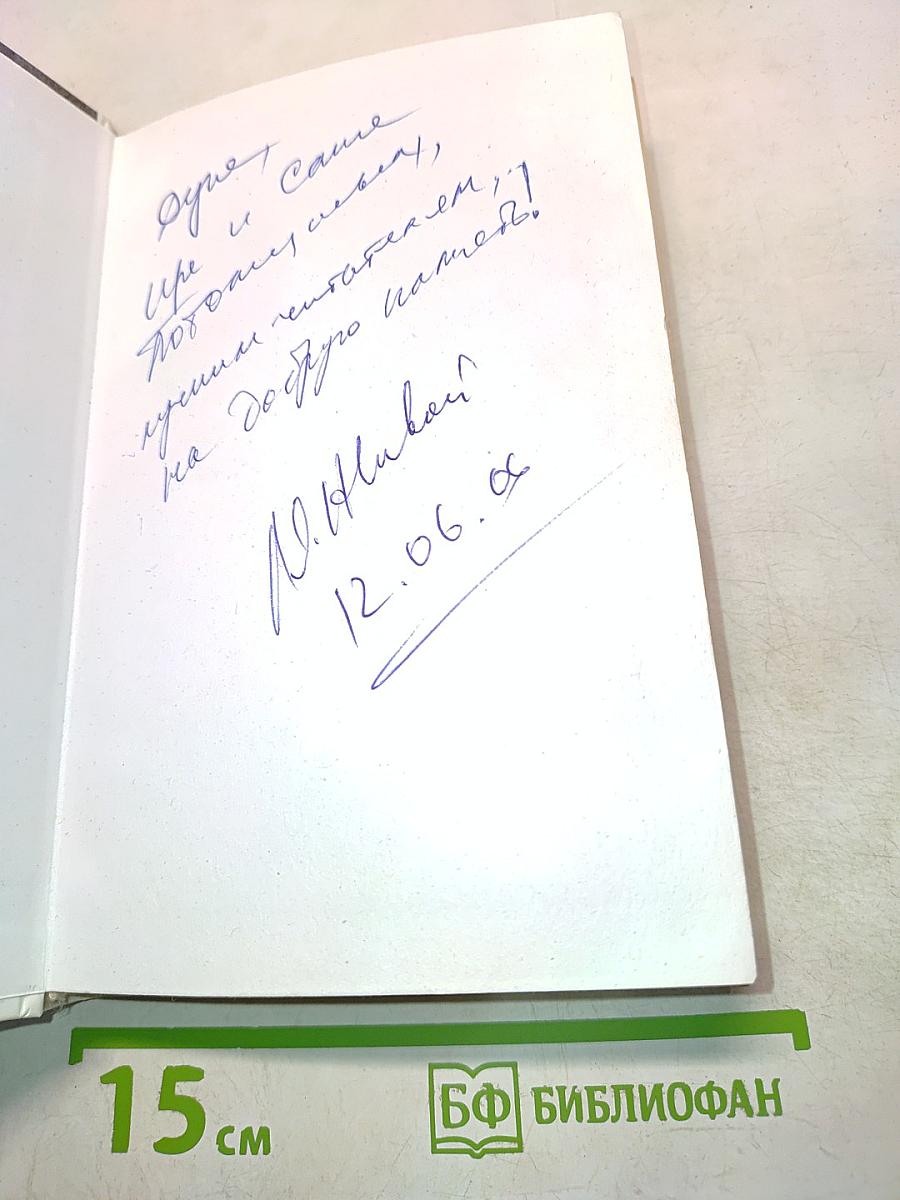 Ире и Саше
лучшим читателям,
на добрую память!
Ю. Живой
12.06.06
15 см
БФ БИБЛИОФАН